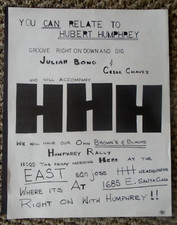 YOU CAN RELATE TO
HUBERT HUMPHREY
GROOVE RIGHT ON DOWN AND DIG
JULIAN BOND &
CESAR CHAVEZ
WHO WILL ACCOMPANY
HHH
WE WILL HAVE OUR OWN BROWN'S & BLACKS
HUMPHREY RALLY
11:00 THE FRIDAY MORNING HERE AT THE
EAST SAN JOSE HHH HEADQUARTERS
WHERE ITS AT 1685 E. SANTA CLARA
RIGHT ON WITH HUMPHREY!!